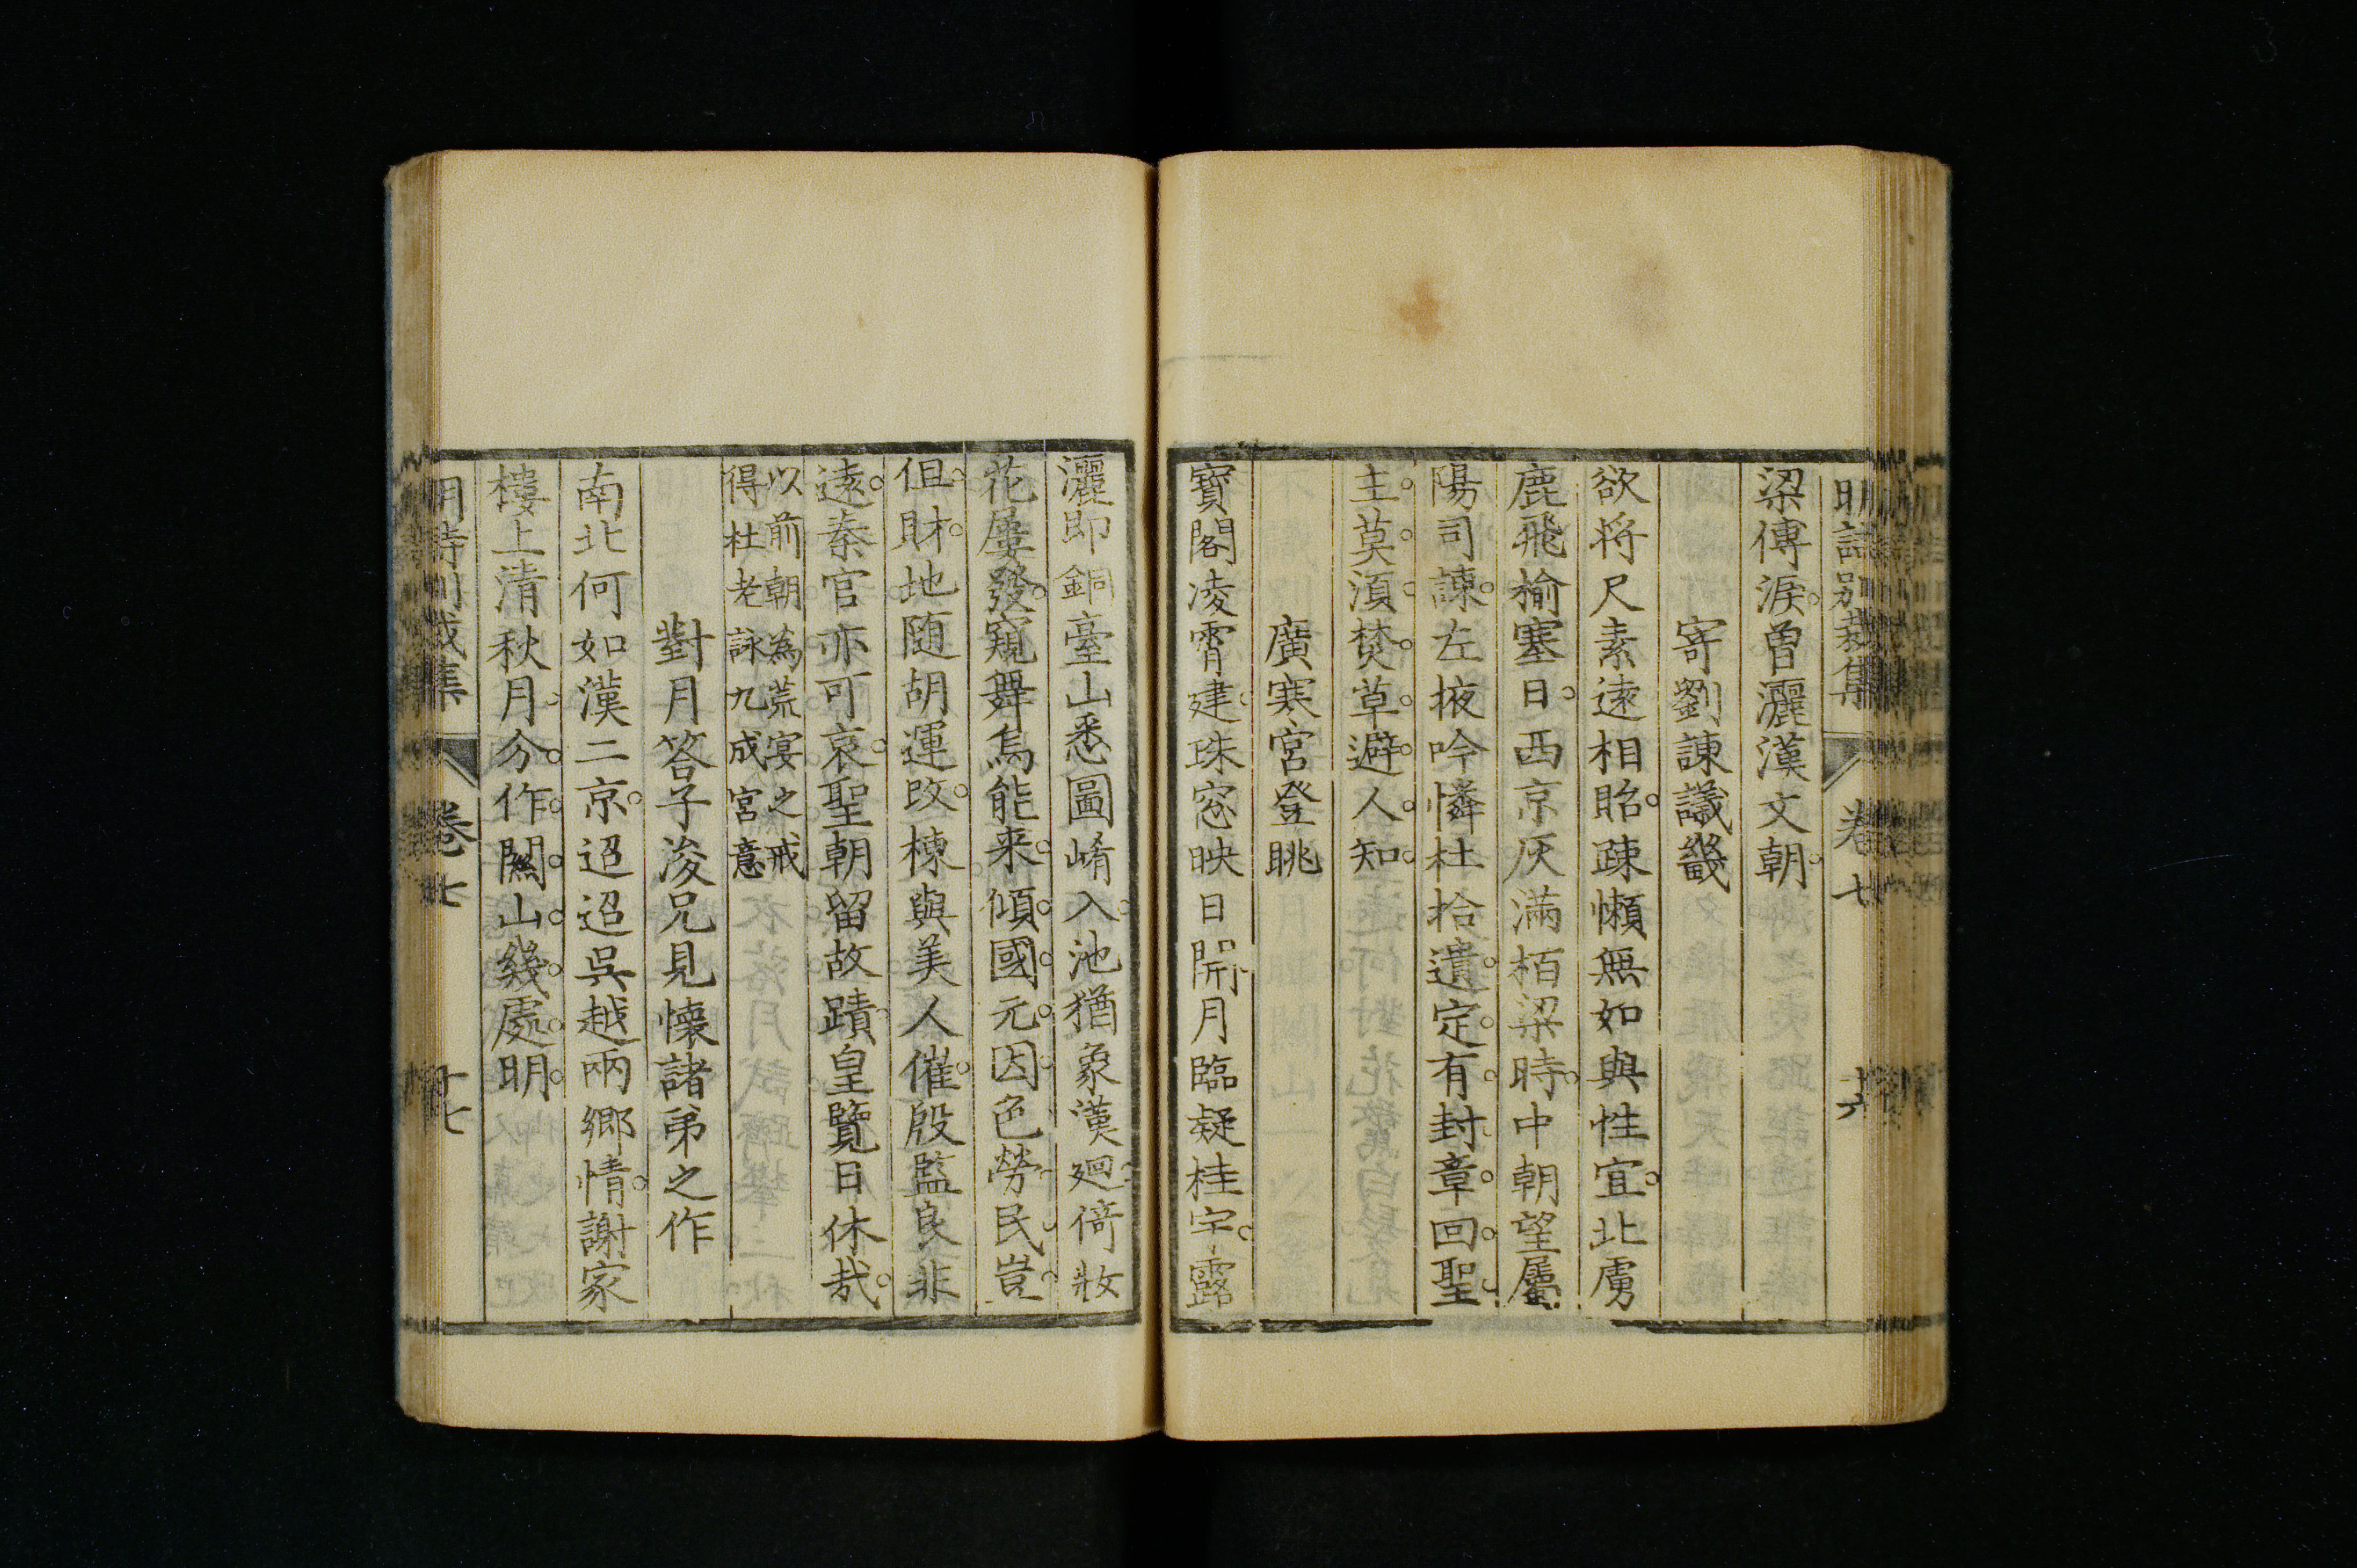 明詩別裁集 卷七 十六
梁傅淚曽灑漢文朝
寄劉諫議畿
欲将尺素逺相貽疎懶無如與性宜北虜
鹿飛榆塞日西京灰滿栢梁時中朝望屬
陽司諫左掖吟憐杜拾遺定有封章回聖
主莫湏焚草避人知
廣寒宮登眺
寳閣凌霄建珠窓映日開月臨疑桂宇露
灑即銅臺山悉圖崤入池猶象漢廻倚妝
花屢發窺舞鳥能来傾國元因色勞民豈
但財地随胡運改棟與美人催殷監良非
逺秦官亦可哀聖朝留故蹟皇覽日休哉
以前朝為荒宴之戒
得杜老詠九成宮意
對月答子浚兄見懐諸弟之作
南北何如漢二京迢迢吳越兩鄉情謝家
樓上清秋月分作關山幾處明
明詩別裁集 卷七 十七